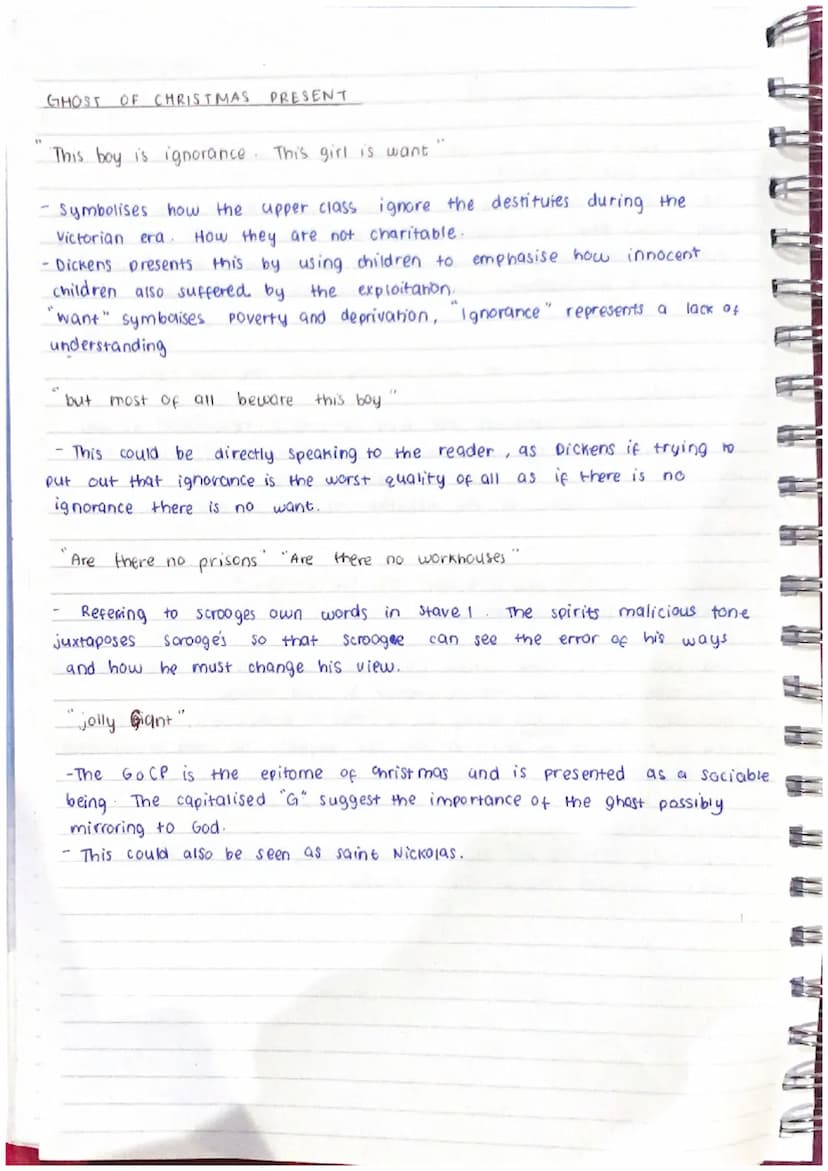 GHOST OF CHRISTMAS PRESENT
"This boy is ignorance. This girl is want"
- Symbolises how the upper class ignore the destitutes during the
Victorian era. How they are not charitable.
- Dickens presents this by using children to emphasise how innocent
children also suffered by the exploitation.
"want" symbolises poverty and deprivation, "Ignorance" represents a lack of
understanding
"but most of all beware this boy"
- This could be directly speaking to the reader, as Dickens if trying to
put out that ignorance is the worst quality of all as if there is no
ignorance there is no want.
"Are there no prisons" "Are there no workhouses"
- Refering to scrooges own words in stave 1. The spirits malicious tone
juxtaposes scrooge's so that scrooge can see the error of his ways
and how he must change his view.
"jolly Giant"
- The GoCP is the epitome of Christmas and is presented as a sociable
being. The capitalised "G" suggest the importance of the ghost possibly
mirroring to God.
- This could also be seen as saint Nickolas.